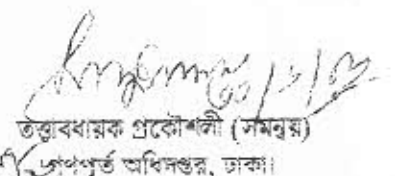 তত্ত্বাবধায়ক প্রকৌশলী (সমন্বয়)
গণপূর্ত অধিদপ্তর, ঢাকা।